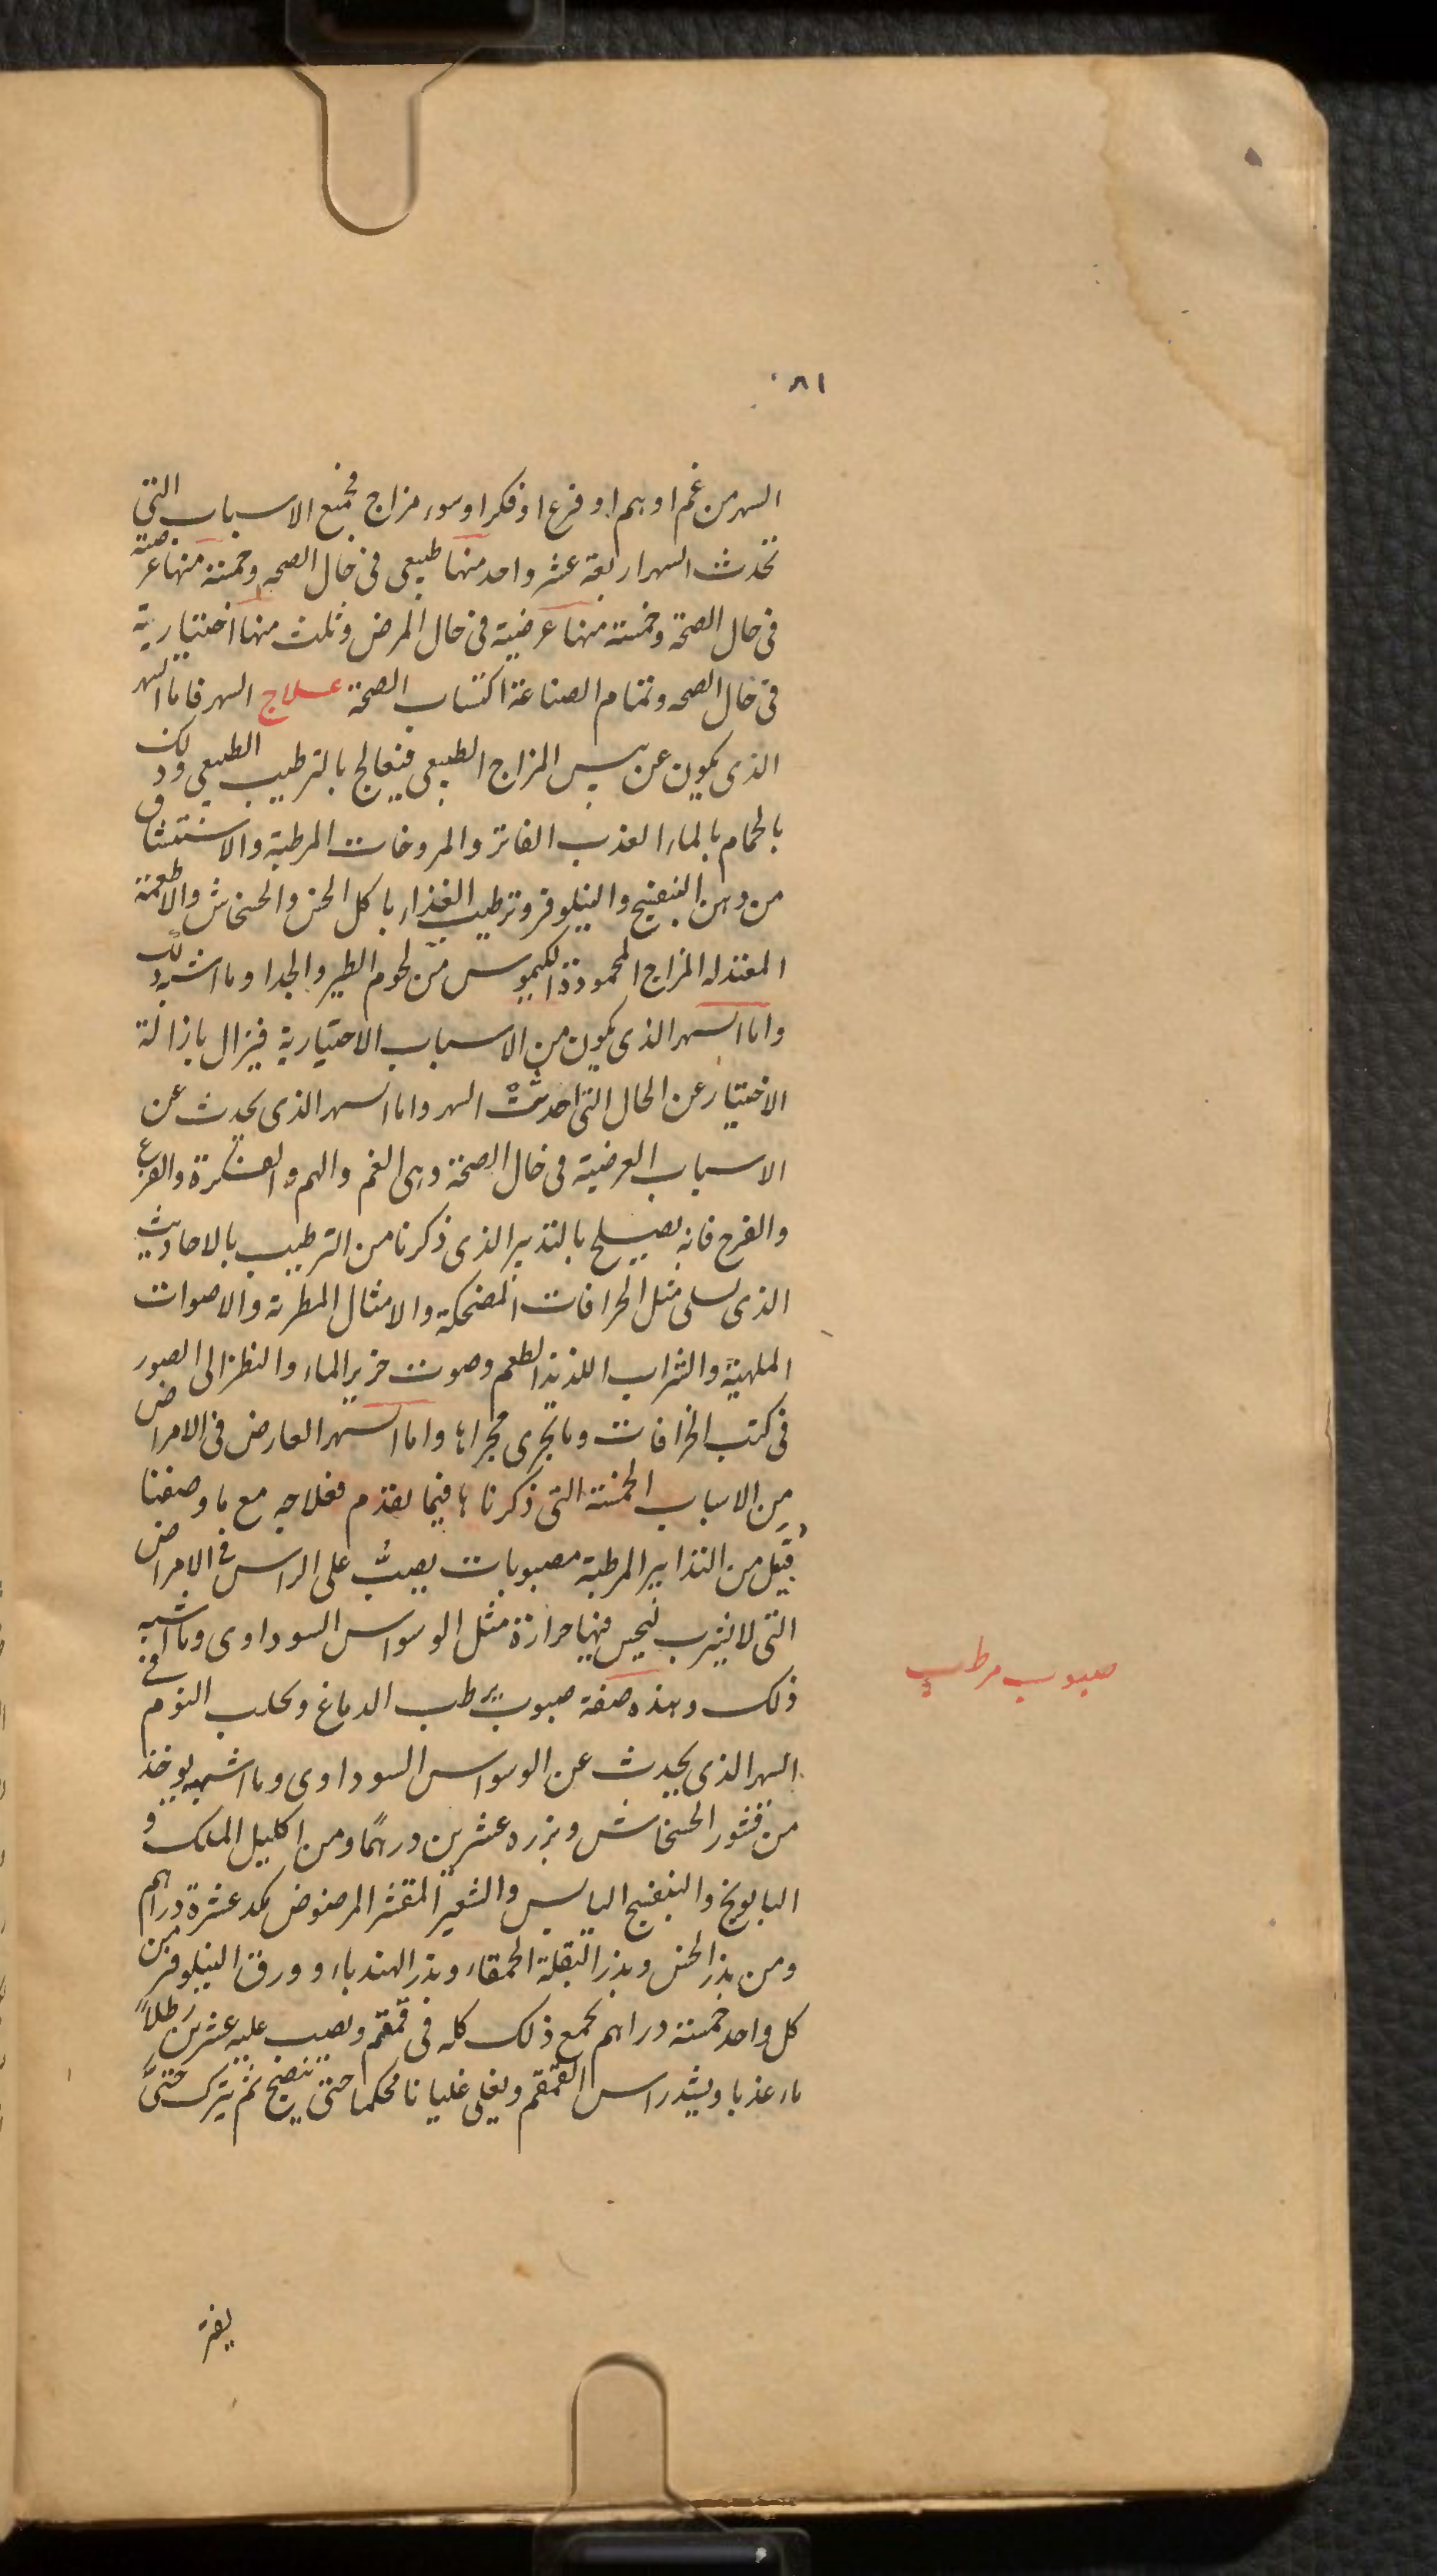 ٨١
السهر من غم او هم او فزع او فكر او سوء مزاج فجميع الاسباب التى
تحدث السهر اربعة عشر واحد منها طبيعى فى حال الصحه وخمسة منها عرضية
فى حال الصحة وخمسة منها عرضية فى حال المرض وثلث منها اختيارية
فى حال الصحه وتمام الصناعة اكتساب الصحة علاج السهر فاما السهر
الذى يكون عن يبس المزاج الطبيعى فيعالج بالترطيب الطبيعى وذلك
بالحمام بالماء العذب الفاتر والمروخات المرطبة والاستنشاق
من دهن البنفسج والنيلوفر وترطيب الغذاء باكل الخس والخشخاش والاطعمة
المعتدله المزاج المحمودة الكيموس من لحوم الطير والجدا وما اشبه ذلك
واما السهر الذى يكون من الاسباب الاختيارية فيزال بازالة
الاختيار عن الحال التى احدثت السهر واما السهر الذى يحدث عن
الاسباب العرضية فى حال الصحة وهى الغم والهم والفكرة والفزع
والفرح فانه يصلح بالتدبير الذى ذكرنا من الترطيب بالاحاديث
الذى يسلى مثل الخرافات المضحكة والامثال المطربة والاصوات
الملهية والشراب اللذيذ الطعم وصوت خرير الماء والنظر الى الصور
فى كتب الخرافات وما يجرى مجراها واما السهر العارض فى الامراض
من الاسباب الخمسة التى ذكرناها فيما تقدم فعلاجه مع ما وصفنا
قبل من التدابير المرطبة مصبوبات يصب على الراس فى الامراض
التى لا فيها حرارة مثل الوسواس السوداوى وما اشبه
ذلك وهذه صفة صبوب يرطب الدماغ ويجلب النوم فى
السهر الذى يحدث عن الوسواس السوداوى وما اشبهه يوخذ
من قشور الخشخاش وبزره عشرين درهمًا ومن اكليل الملك و
البابونج والبنفسج اليابس والشعير المقشر المرضوض يكد عشرة دراهم
ومن بذر الخس وبذر البقلة الحمقاء وبذر الهندباء وورق النيلوفر من
كل واحد خمسة دراهم يجمع ذلك كله فى قمقم ويصب عليه عشرين رطلاً
ماء عذبا ويشد راس القمقم ويغلى غليانا محكما حتى ينضج ثم يترك حتى
صبوب مرطب
يفتر